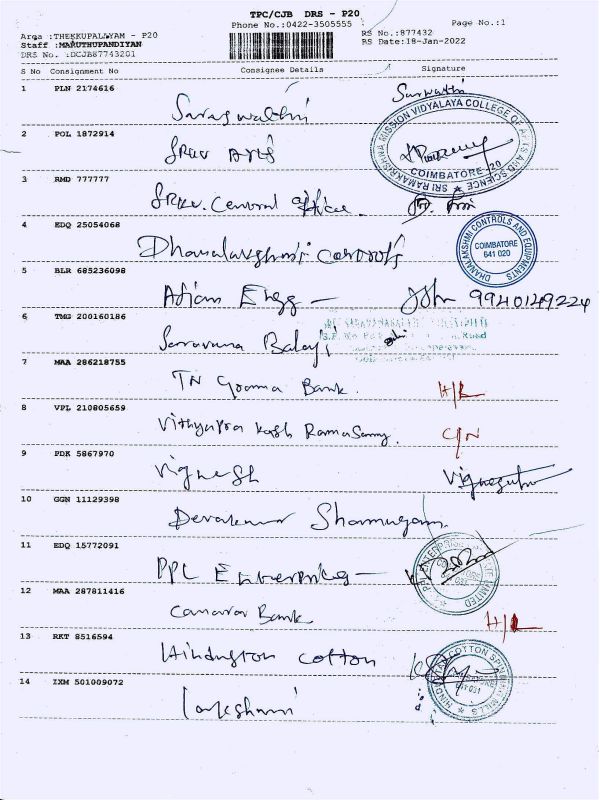 TPC/CJB DRS - P20
Phone No.:0422-3505555 Page No.:1
Area :THEKKUPALAYAM - P20 RS No.:877432
Staff :MARUTHUPANDIYAN RS Date:18-Jan-2022
DRS No. :DCJB87743201
S No Consignment No Consignee Details Signature
1 PLN 2174616 Saraswathi Saraswathi
SRI RAMAKRISHNA MISSION VIDYALAYA COLLEGE OF ARTS AND SCIENCE
COIMBATORE - 20
2 POL 1872914 SRKV Arts
3 RMD 777777 SRKV. Central Office
4 EDQ 25054068 Dhanalakshmi Controls
DHANALAKSHMI CONTROLS AND EQUIPMENTS
COIMBATORE
641 020
5 BLR 685236098 Engg - John 9940149224
6 TMG 200160186 Saravana Balaji
7 MAA 286218755 TN Grama Bank. H/L
8 VPL 210805659 Vithyapra kash Ramasamy. C/N
9 PDK 5867970 Vignesh
10 GGN 11129398 Devakumar Shanmugam
11 EDQ 15772091 PPL Enterprises -
12 MAA 287811416 Canara Bank H/L
13 RKT 8516594 Hindustan cotton
HINDUSTAN COTTON SPINNING MILLS
14 IXM 501009072 lakshmi